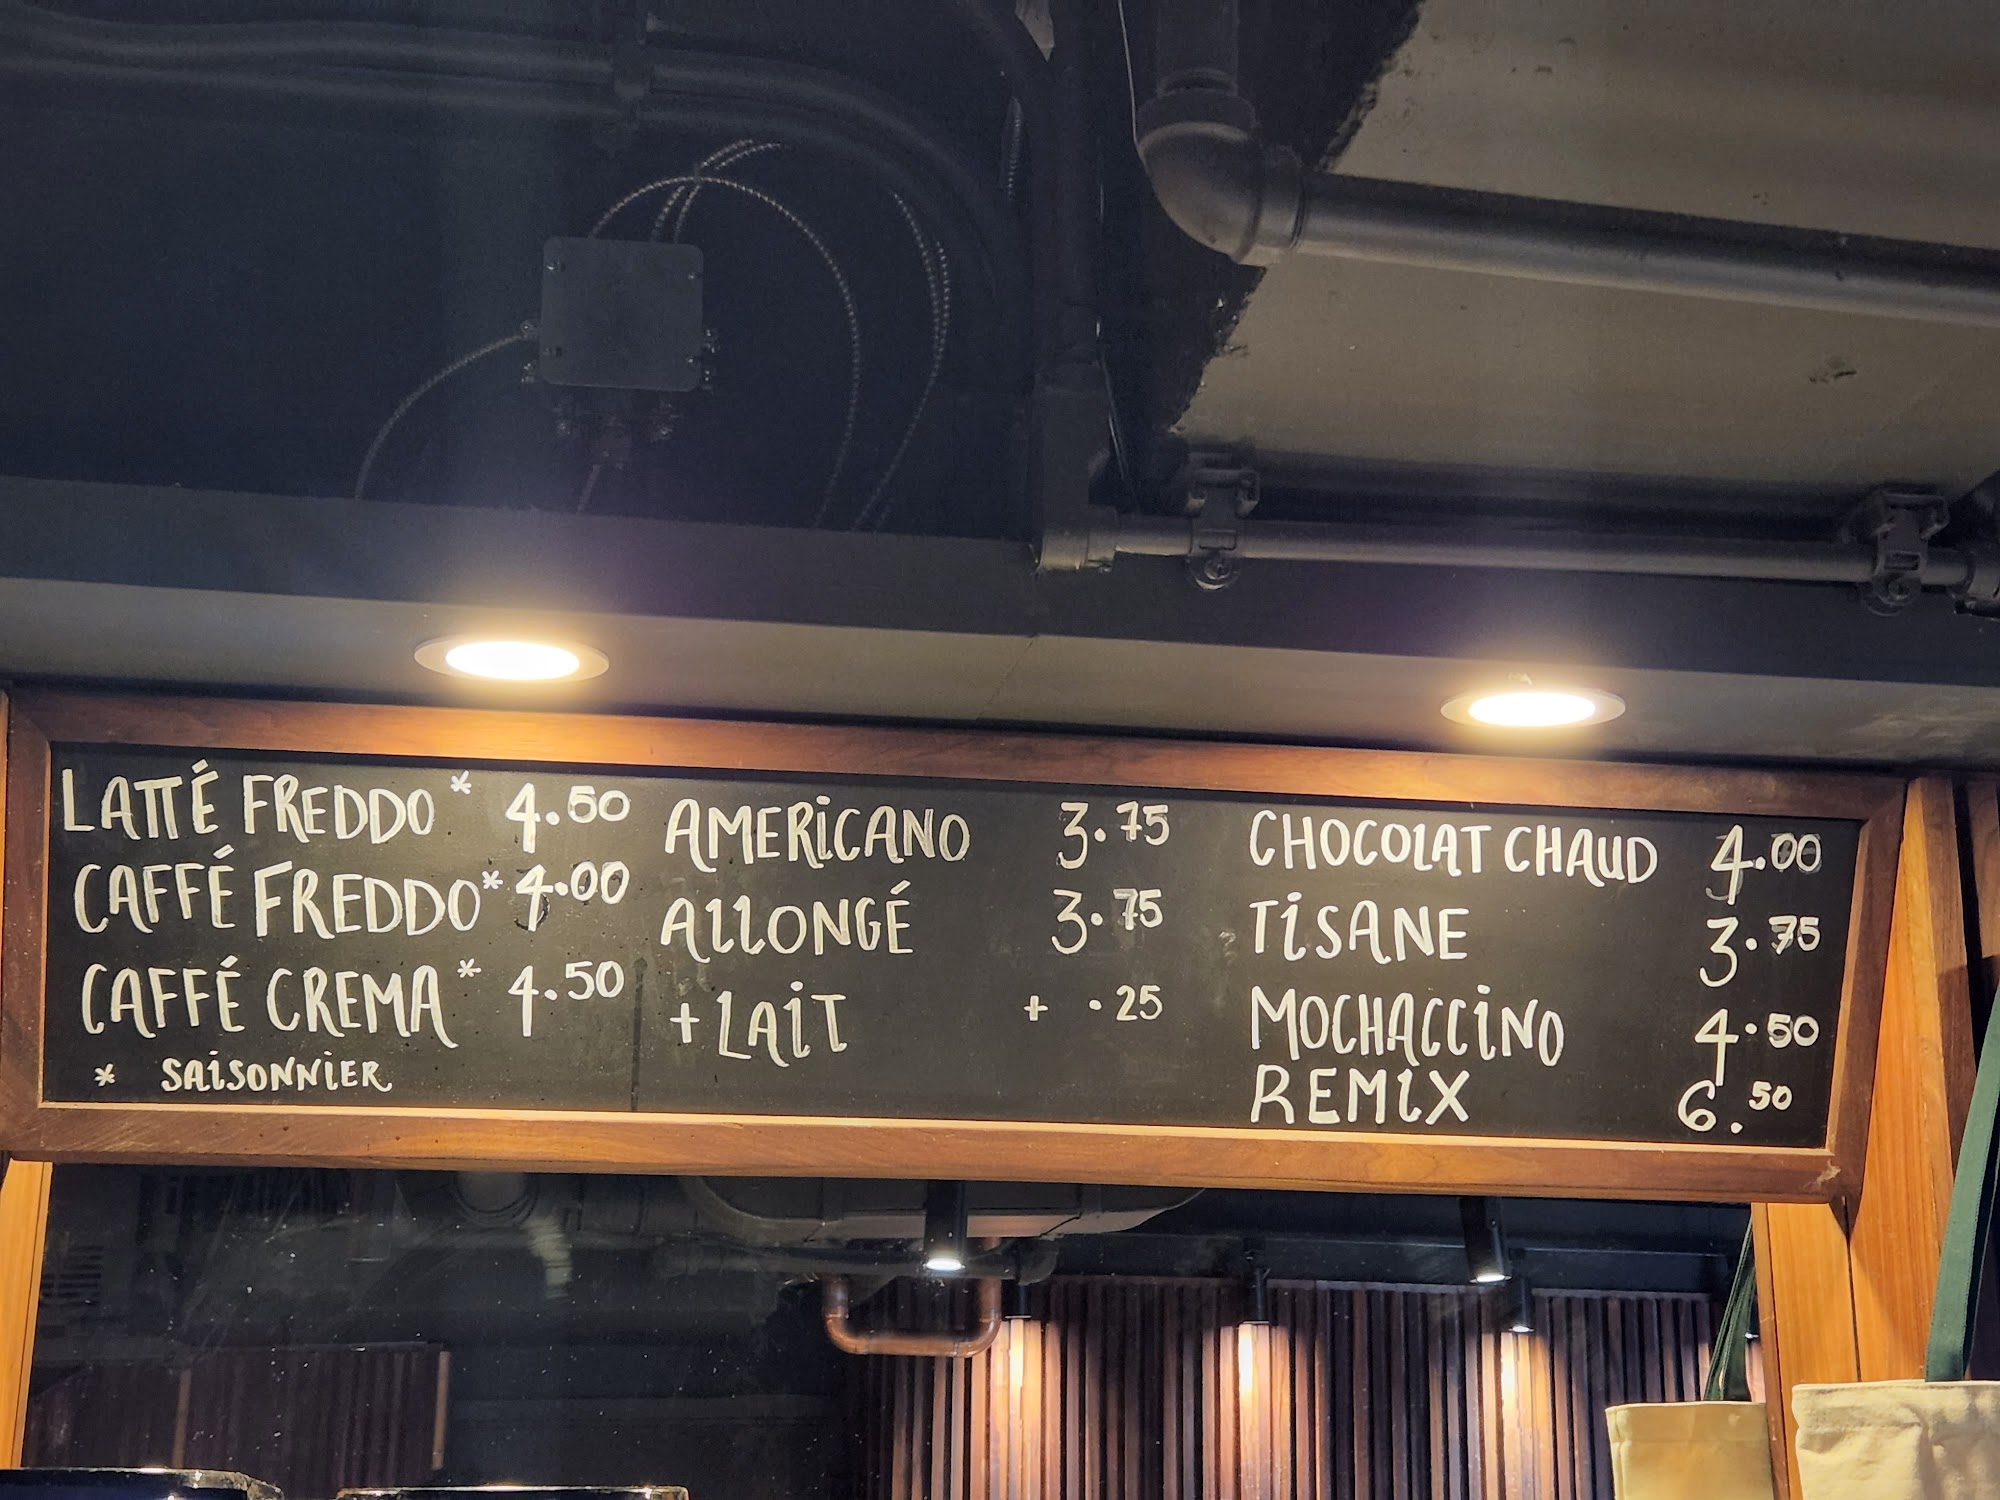 LATTÉ FREDDO* 4.50
CAFFÉ FREDDO* 4.00
CAFFÉ CREMA* 4.50
* SAISONNIER
AMERICANO 3.75
ALLONGÉ 3.75
+ LAIT + .25
CHOCOLAT CHAUD 4.00
TISANE 3.75
MOCHACCINO 4.50
REMIX 6.50